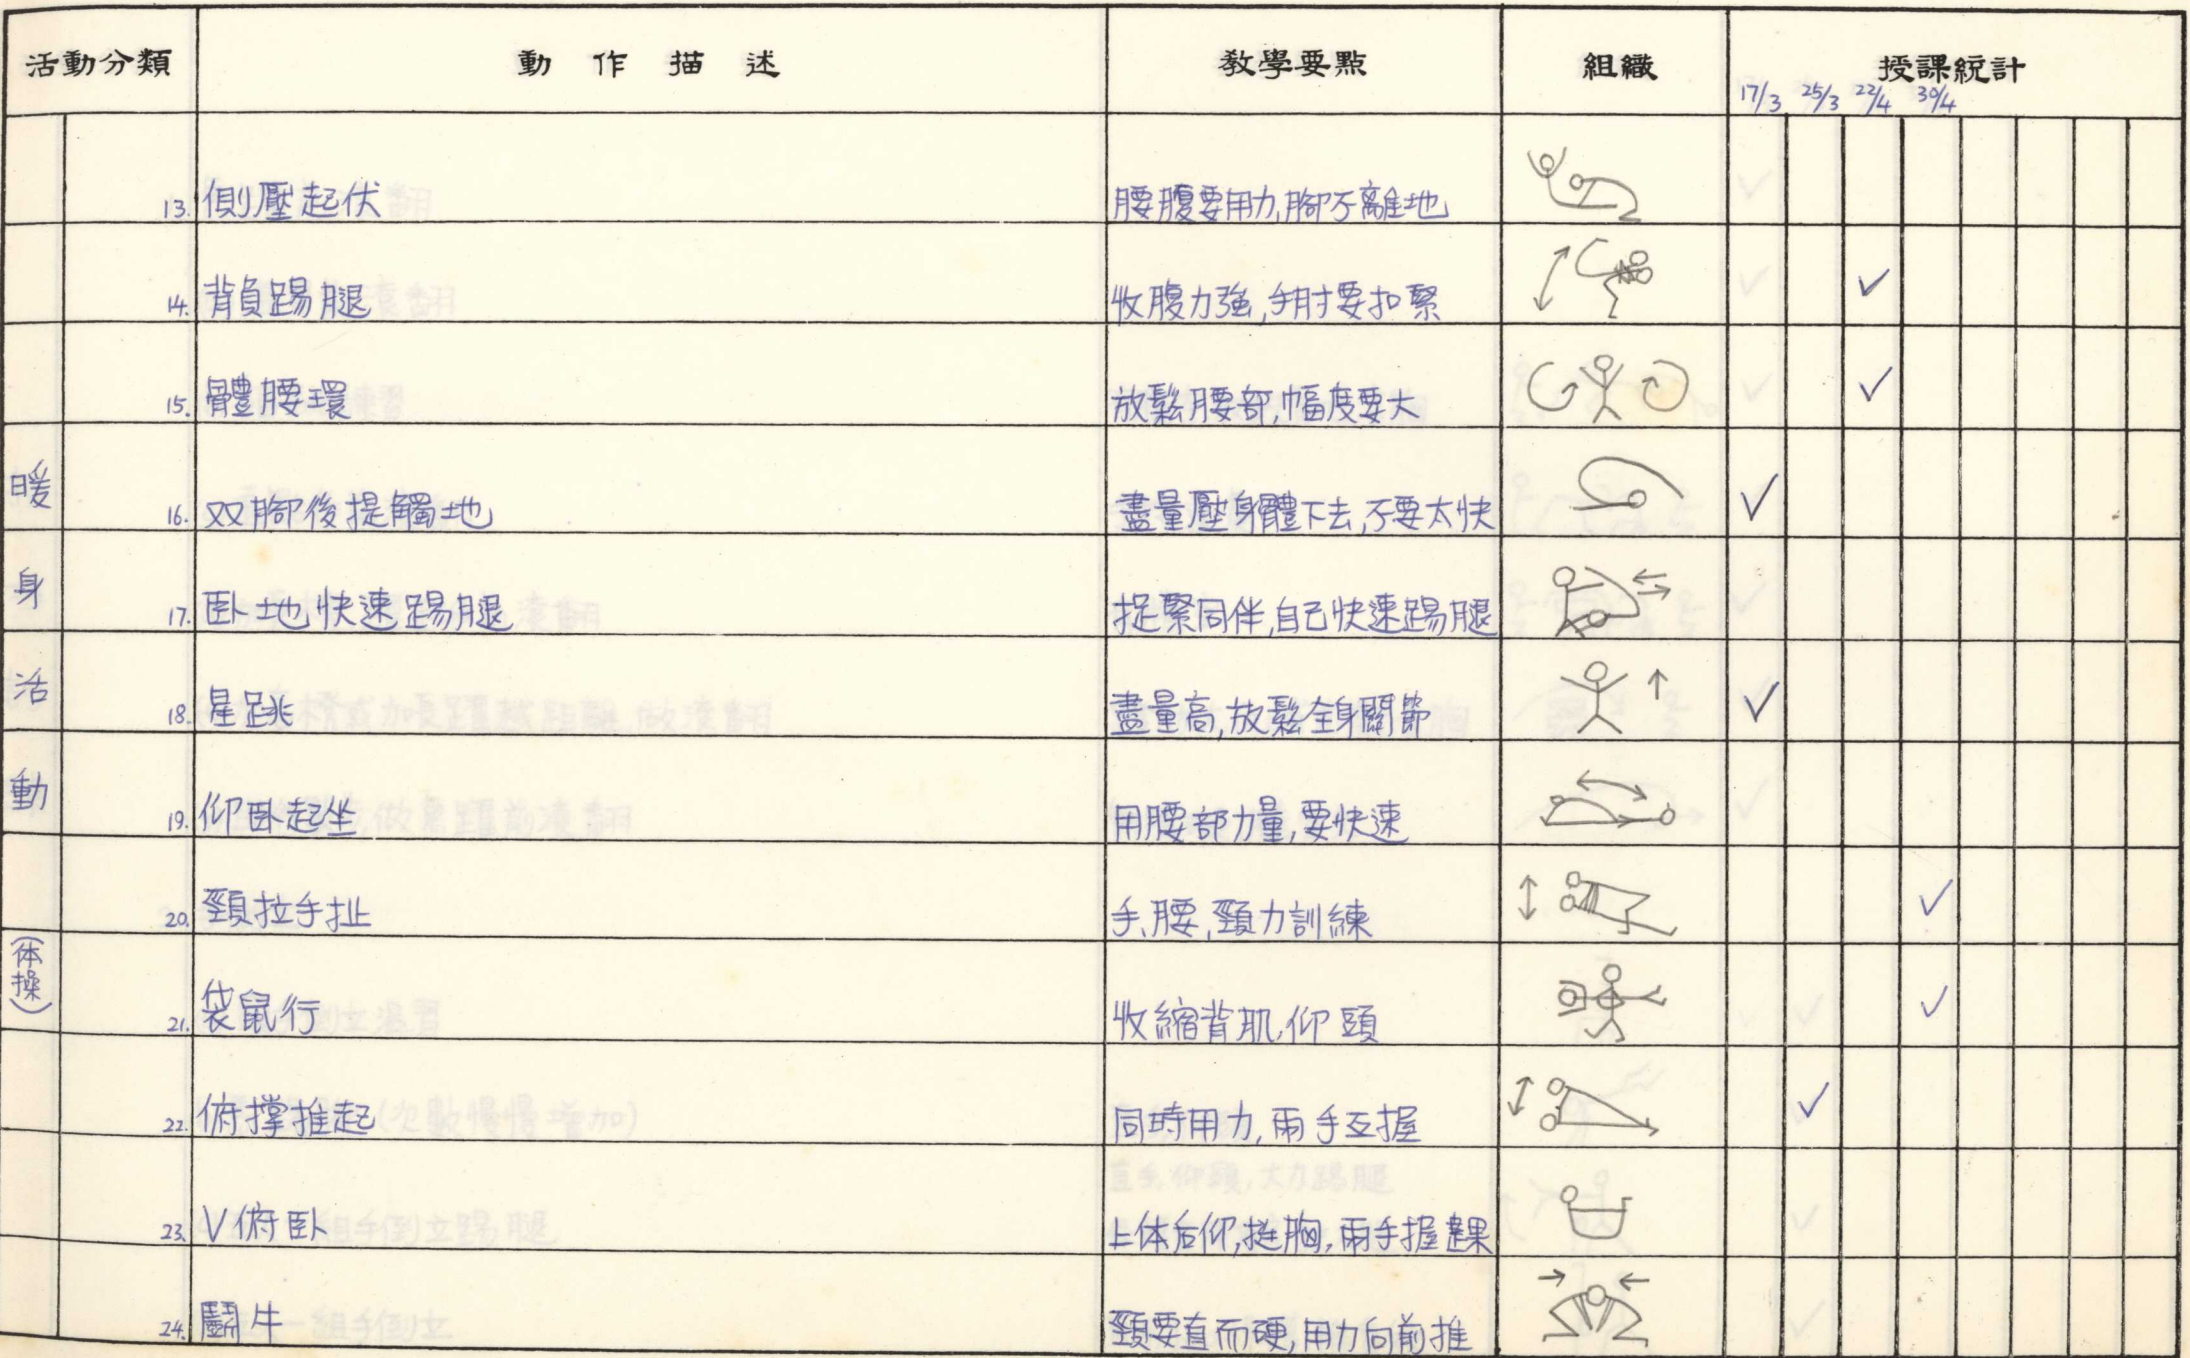 活動分類 動作描述 教學要點 組織 授課統計
17/3 25/3 22/4 30/4
暖身活動
(体操)
13. 側壓起伏 腰腹要用力,腳不離地
14. 背負踢腿 收腹力強,手肘要扣緊 ✓
15. 體腰環 放鬆腰部,幅度要大 ✓
16. 双腳後提觸地 盡量壓身體下去,不要太快 ✓
17. 臥地快速踢腿 捉緊同伴,自己快速踢腿
18. 星跳 盡量高,放鬆全身關節 ✓
19. 仰臥起坐 用腰部力量,要快速
20. 頸拉手扯 手、腰、頸力訓練 ✓
21. 袋鼠行 收縮背肌,仰頭 ✓
22. 俯撐推起 同時用力,兩手互握 ✓
23. V俯臥 上体后仰,挺胸,兩手握踝
24. 鬪牛 頸要直而硬,用力向前推